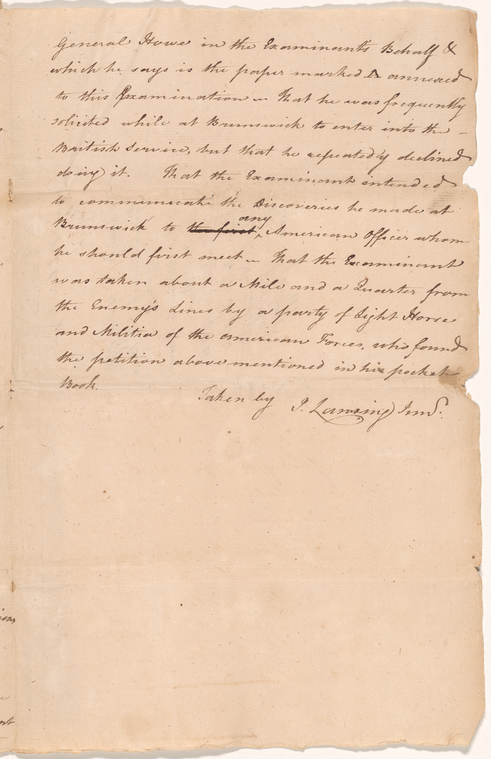 General Howe in the Examinant's Behalf &
which he says is the paper marked A annexed
to this Examination — That he was frequently
solicited while at Brunswick to enter into the –
British Service, but that he repeatedly declined
doing it. That the Examinant intended
to communicate the Discoveries he made at
Brunswick to the first any American Officer whom
he should first meet — That the Examinant
was taken about a Mile and a Quarter from
the Enemy's Lines by a party of Light Horse
and Militia of the American Forces, who found
the petition above mentioned in his pocket
Book.
Taken by J. Lansing Junr.